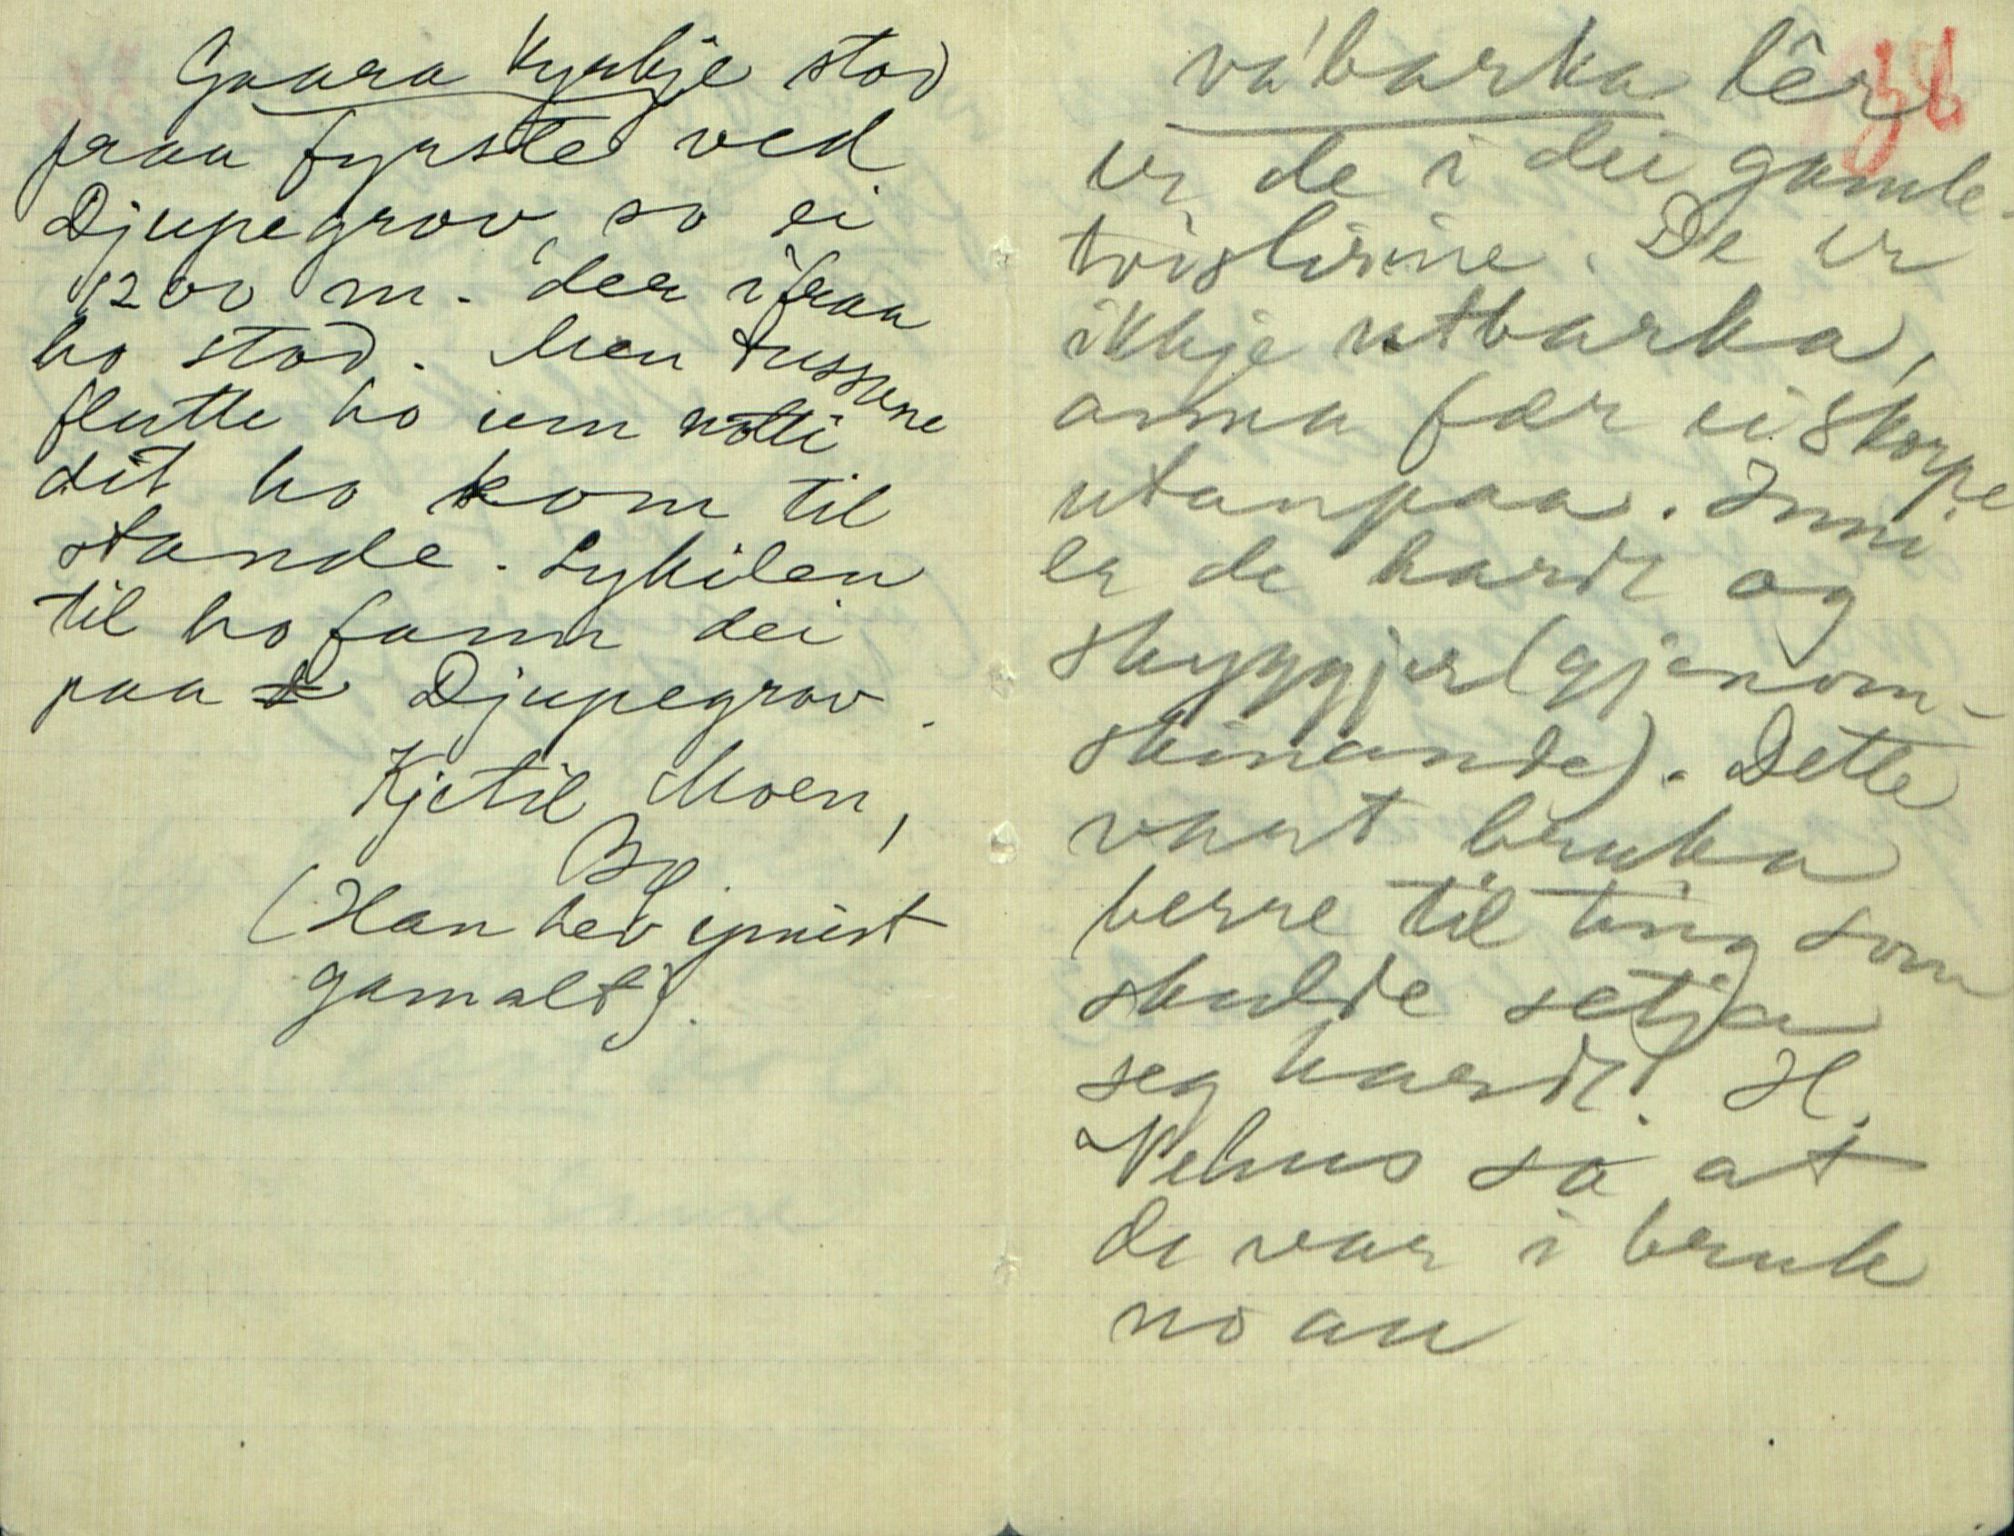 Gaara Kyrkje stod
fraa fyrste ved
Djupegrov, so ei
1200 m. der ifraa
ho stod. Men tussane
flutte ho um notti
dit ho kom til
stande. Lykilen
til ho fann dei
paa Djupegrov.
Kjetil Moen,
Bø
(Han hev ymist
gamalt).
36
vá'barka lêr
er de i dei gamle
tvislirine. De er
ikkje utbarka,
anna fær ei skorpe
utanpaa. Inni
er de hardt og
skyggjer (gjenom-
skinande). Dette
vart bruka
berre til ting som
skulde setja
seg hardt. H.
Vehus sa at
de var i bruk
no au